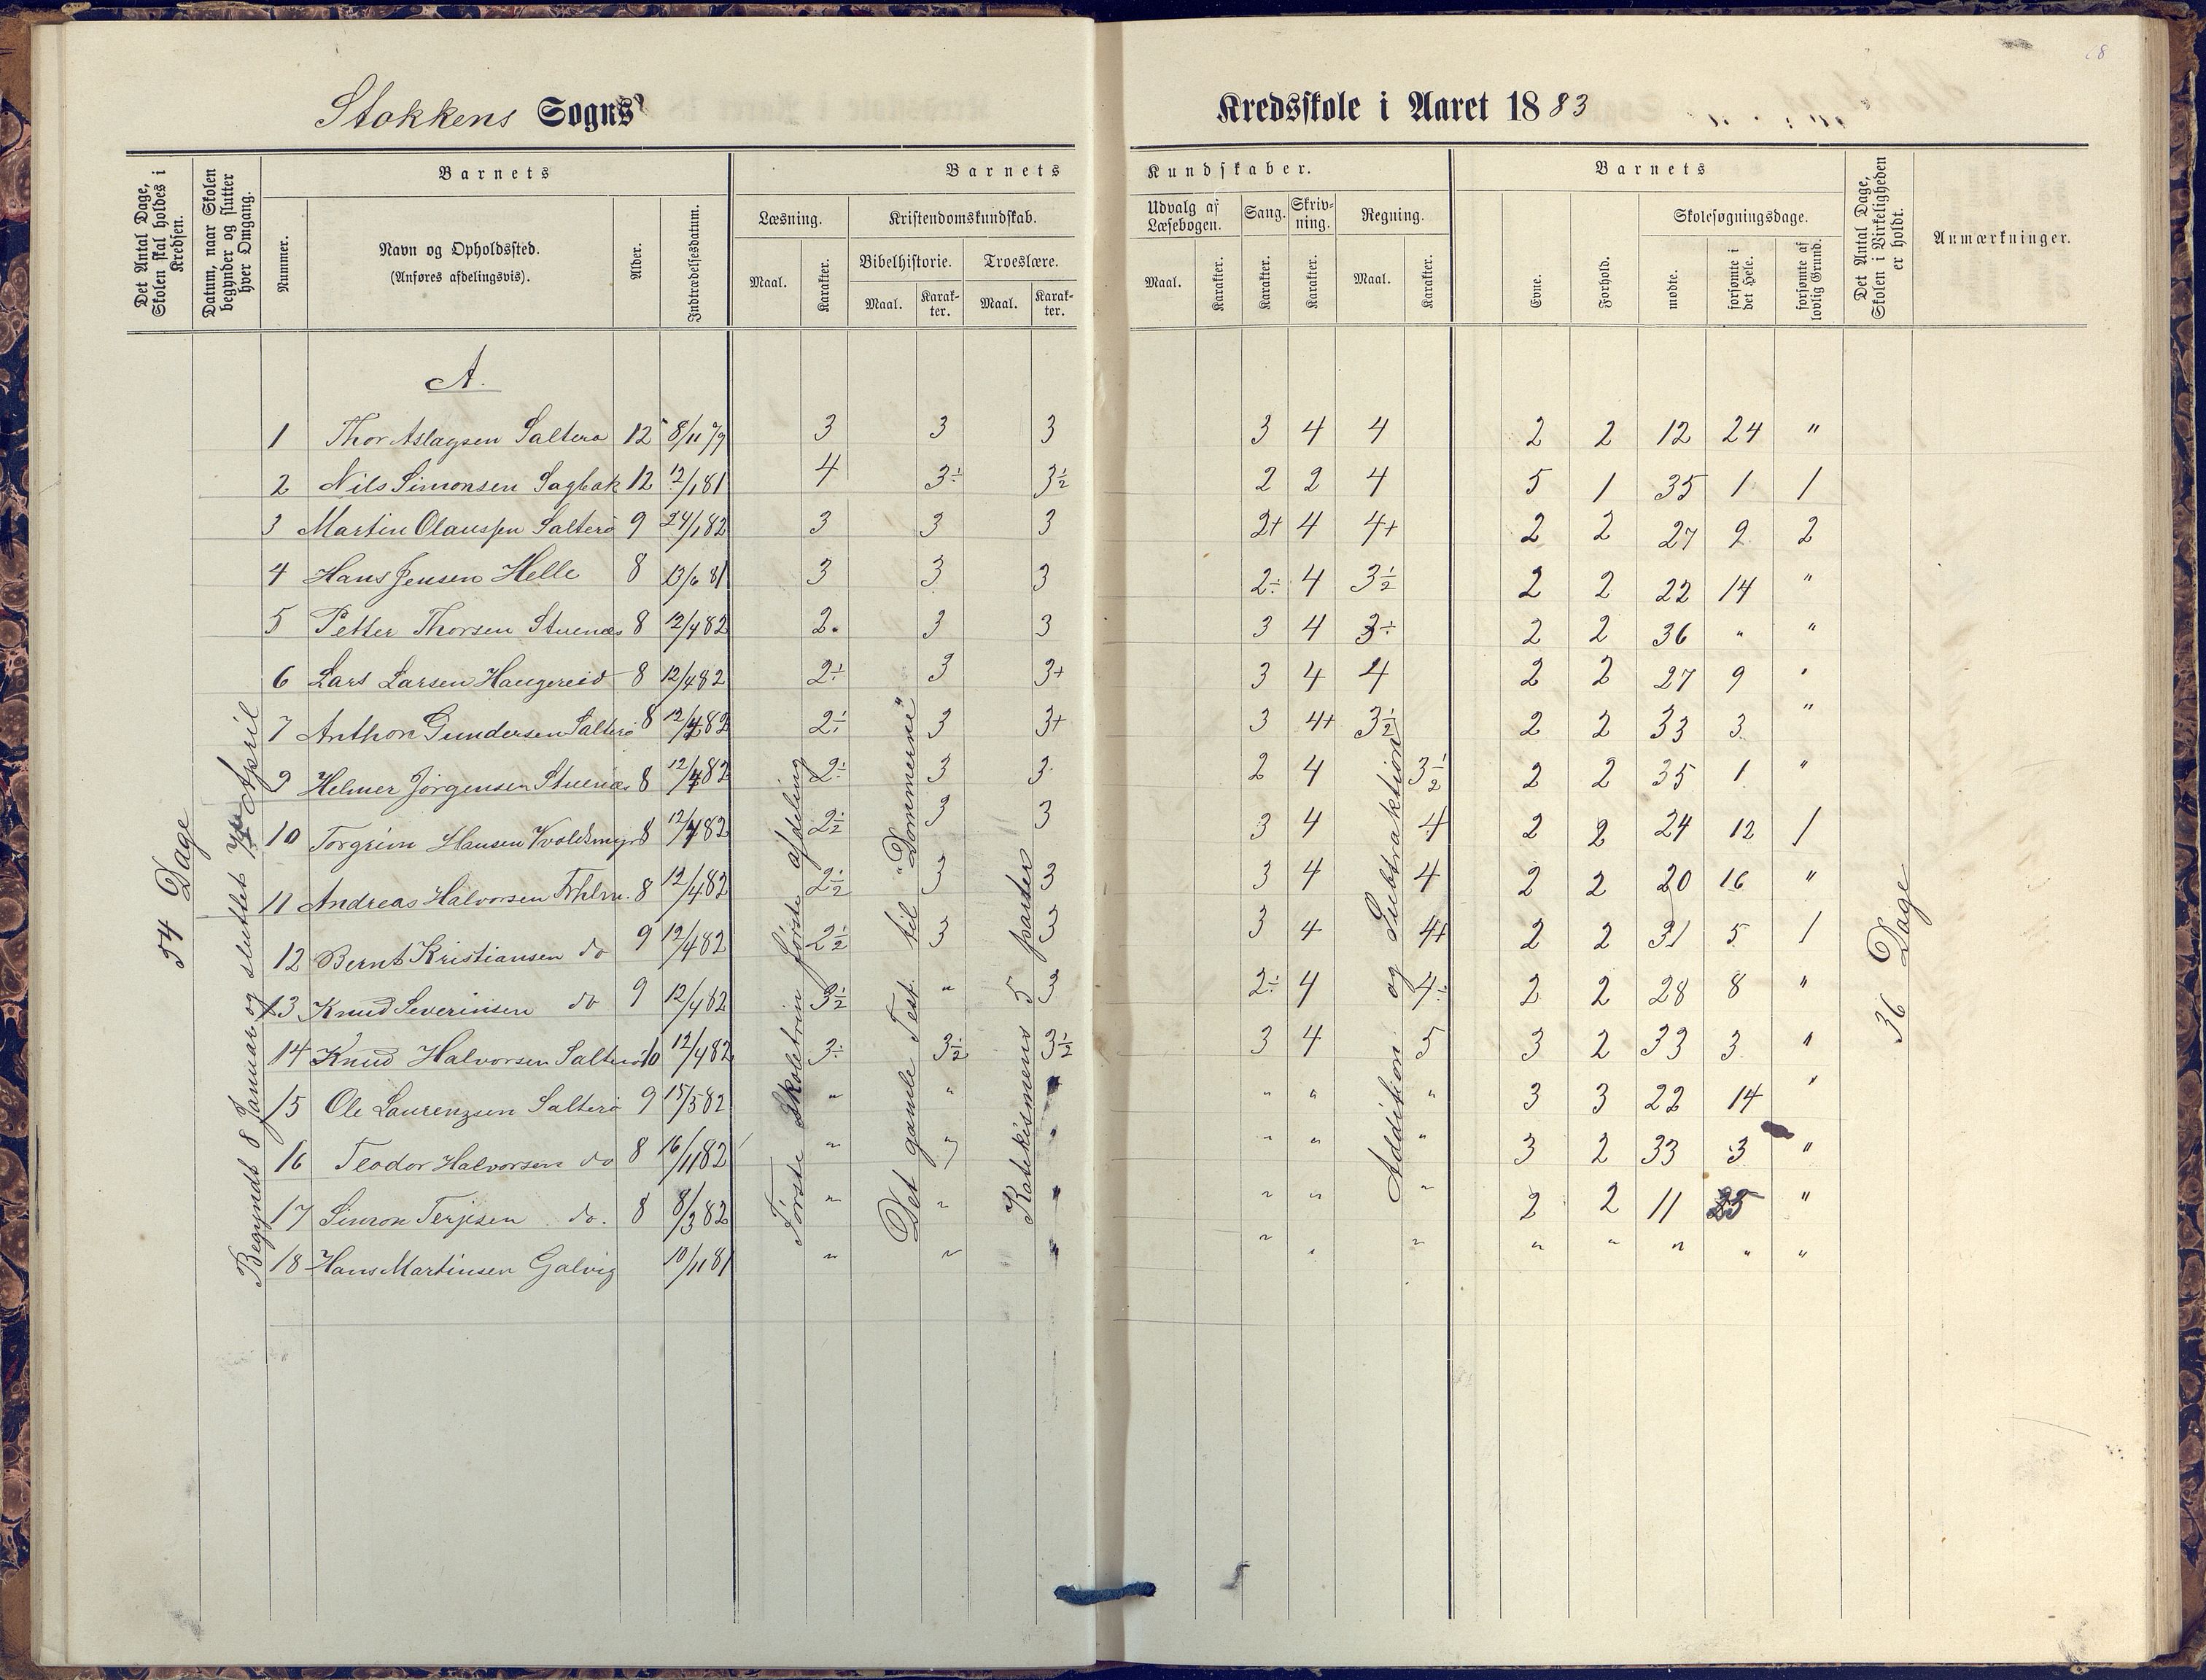 Stokkens Sogns Kredsskole i Aaret 1883
Det Antal Dage, Skolen skal holdes i Kredsen.
Datum, naar Skolen begynder og slutter hver Omgang.
Barnets
Nummer.
Navn og Opholdssted.
(Anføres afdelingsvis).
Alder.
Indtrædelsesdatum.
Barnets Kundskaber.
Læsning.
Maal. Karakter.
Kristendomskundskab.
Bibelhistorie. Troeslære.
Maal. Karakter. Maal. Karakter.
Udvalg af Læsebogen.
Maal. Karakter.
Sang.
Karakter.
Skrivning.
Karakter.
Regning.
Maal. Karakter.
Barnets
Evne. Forhold.
Skolesøgningsdage.
mødte. forsømte i det Hele. forsømte af lovlig Grund.
Det Antal Dage, Skolen i Virkeligheden er holdt.
Anmærkninger.
A.
1 Thor Aslagsen Salterø 12 8/11 79 3 3 3 3 4 4 2 2 12 24 "
2 Nils Simonsen Sagbak 12 12/1 81 4 3÷ 3½ 2 2 4 5 1 35 1 1
3 Martin Olaussen Salterö 9 24/1 82 3 3 3 2+ 4 4+ 2 2 27 9 2
4 Hans Jensen Helle 8 13/6 81 3 3 3 2÷ 4 3½ 2 2 22 14 "
5 Petter Thorsen Stuenes 8 12/4 82 2. 3 3 3 4 3÷ 2 2 36 " "
6 Lars Larsen Haugereid 8 12/4 82 2÷ 3 3+ 3 4 4 2 2 27 9 "
7 Anthon Gundersen Salterö 8 12/4 82 2÷ 3 3+ 3 4+ 3½ 2 2 33 3 "
9 Helmer Jörgensen Stuenæs 8 12/4 82 2÷ 3 3 2 4 3½ 2 2 35 1 "
10 Torgrim Hansen 8 12/4 82 2½ 3 3 3 4 4 2 2 24 12 1
11 Andreas Halvorsen 8 12/4 82 2½ 3 3 3 4 4 2 2 20 16 "
12 Bernt Kristiansen do 9 12/4 82 2½ 3 3 3 4 4+ 2 2 31 5 1
13 Knud Severinsen do 9 12/4 82 3½ " 3 2÷ 4 4÷ 2 2 28 8 "
14 Knud Halvorsen Salterö 10 12/4 82 3÷ 3½ 3½ 3 4 5 3 2 33 3 "
15 Ole Laurenzsen Salterö 9 15/5 82 " " " " " " 3 3 22 14 "
16 Teodor Halvorsen do 8 16/11 82 " " " " " " 3 2 33 3 "
17 Simon Terjesen do. 8 8/3 82 " " " " " " 2 2 11 25 "
18 Hans Martinsen Galvig 10/11 81 " " " " " " " " " " "
54 Dage
Begyndt 8 Januar og sluttet April
Første Skoletrin første afdeling
Det gamle Test. til "Dommerne"
Katekismens 5 parter
Addition og Subtraktion
36 Dage